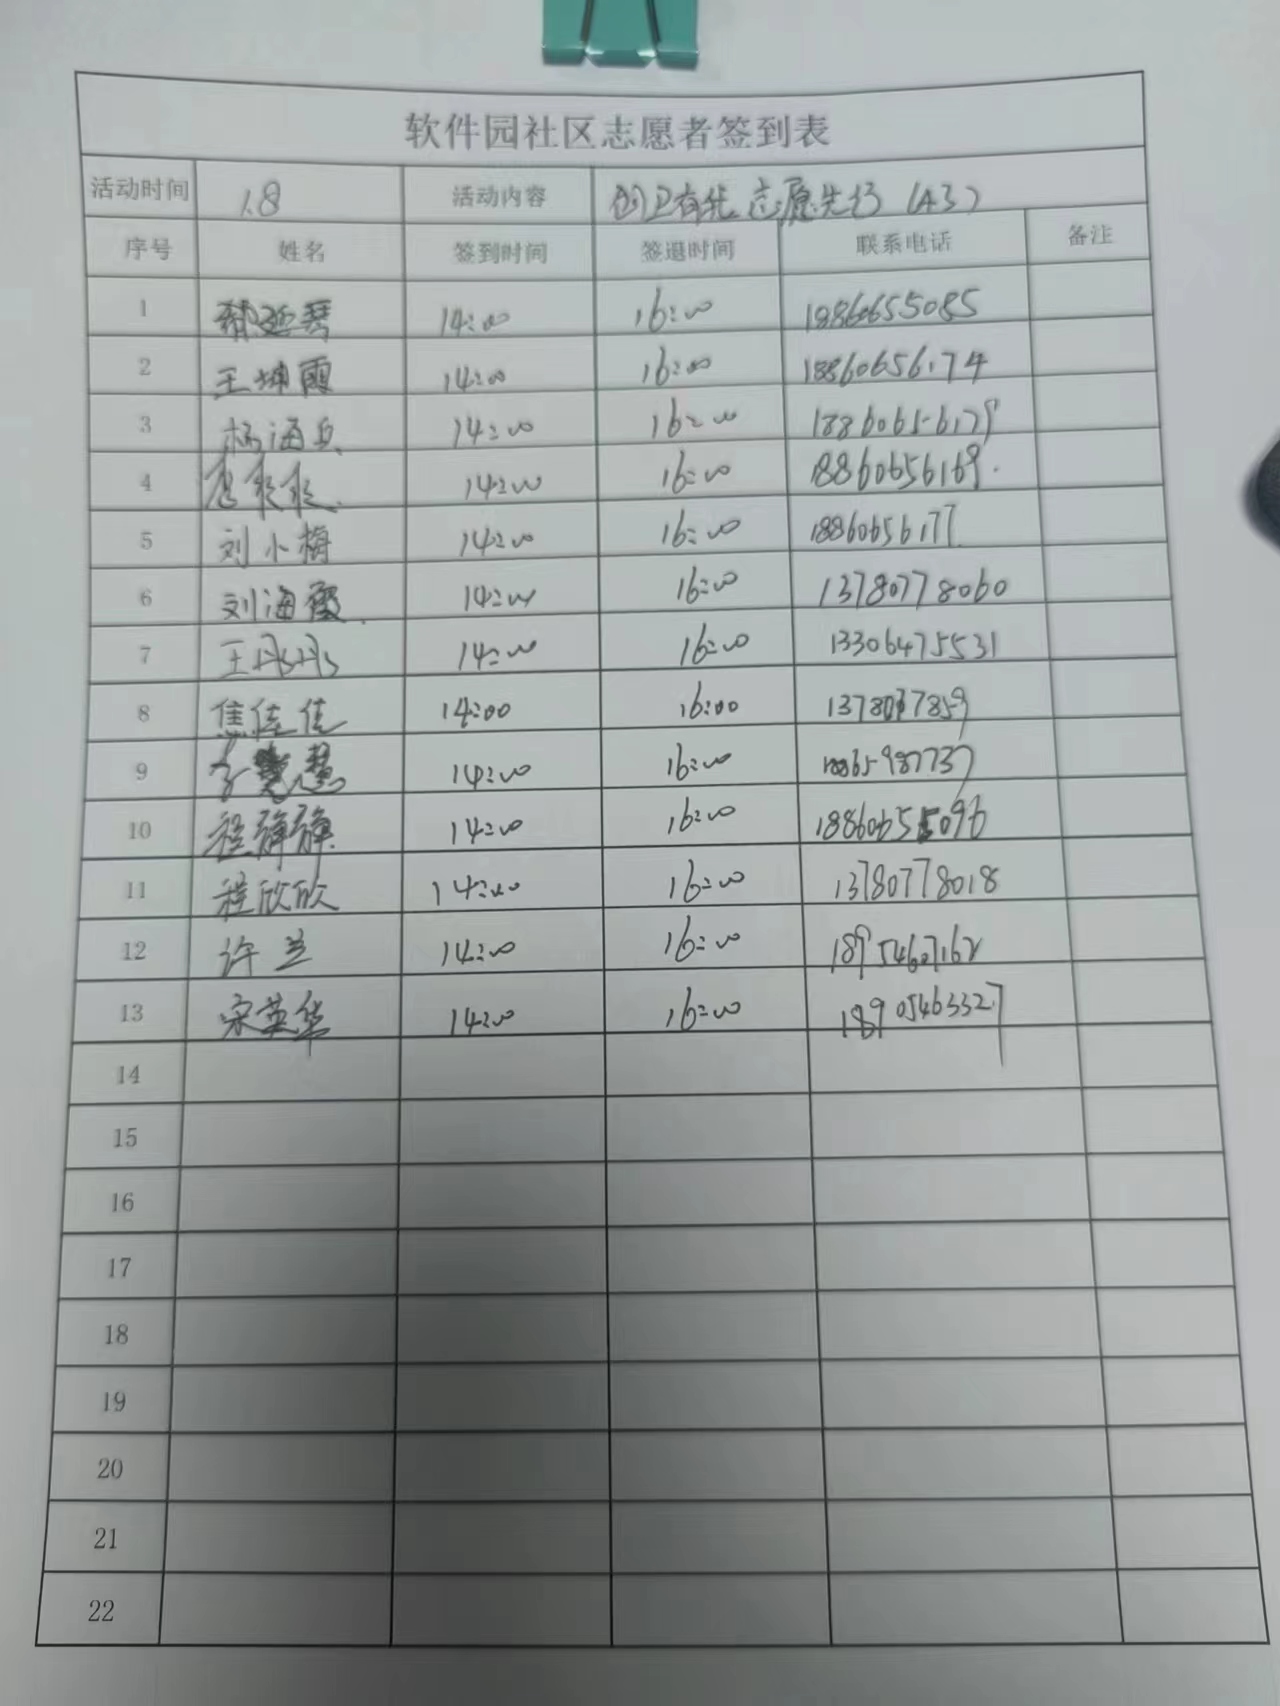 软件园社区志愿者签到表
活动时间 1.8 活动内容 创卫有我 志愿先行 (A3)
序号 姓名 签到时间 签退时间 联系电话 备注
1 14:00 16:00 18860655085
2 王坤霞 14:00 16:00 18860656174
3 杨海兵 14:00 16:00 18860656179
4 14:00 16:00 18860656169
5 刘小梅 14:00 16:00 18860656177
6 刘海霞 14:00 16:00 13780778060
7 王丹丹 14:00 16:00 13306475531
8 焦佳佳 14:00 16:00
9 14:00 16:00
10 程静静 14:00 16:00 18860655096
11 程欣欣 14:00 16:00 13780778018
12 许兰 14:00 16:00 18954607162
13 宋英华 14:00 16:00 18905463327
14
15
16
17
18
19
20
21
22